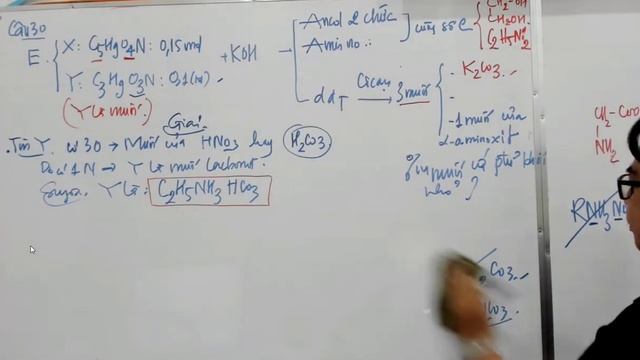 Câu 30
E
X: C3H9O4N: 0,15 mol
Y: C3H9O3N: 0,1 mol
+ KOH
Ancol 2 chức
Amin no
cùng số C
CH2-OH
CH2OH
C2H5NH2
dd T
Cô cạn
3 muối
- K2CO3
-
- 1 muối của
α-aminoaxit
(Y là muối)
Giải
. Tìm Y. có 3O → Muối của HNO3 hay H2CO3
Do có 1N → Y là muối Cacbonat.
Y là: C2H5NH3HCO3
muối có
CH2-COO
NH2
RNH3
CO3